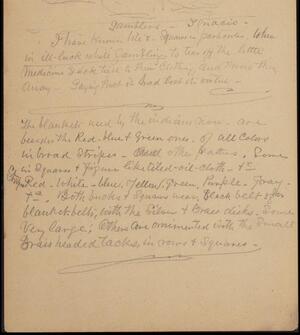 Gambling - Ignacio -
I have known Ute & Squaws in parhouse, when
in ill-luck while Gambling to tear off the little
Medicine Sack tied to their Clothing and throw them
away - Saying that it had lost its virtue -
The blankets used by the indians now - are
the Red, blue & Green ones - of all Colors
in broad Stripes - other patterns, Some
in Squares & Figures like tiled-oil-cloth - &c
Red - White - blue, Yellow, Green, Purple - Gray -
&c. Both bucks & Squaws wear black belts over
blanket belts, with the Silver & Brass disks - Some
Very large; Others are ornamented with the Small
Brass headed tacks, in rows & Squares -